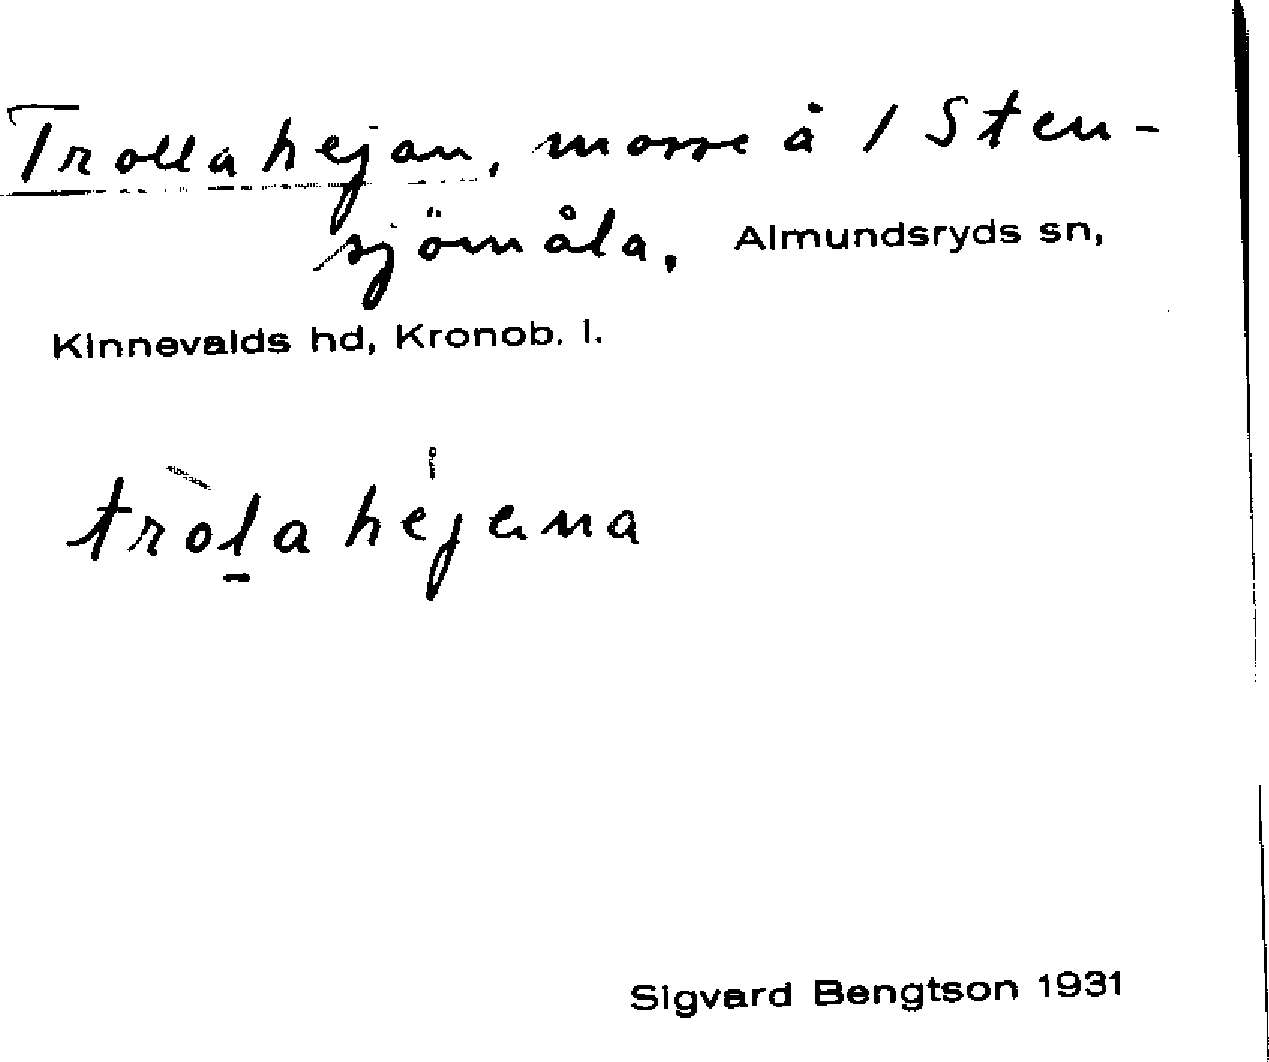 Trollahejan, mosse å 1 Sten-
sjömåla, Almundsryds sn,
Kinnevalds hd, Kronob. l.
tròḻa hejena
Sigvard Bengtson 1931